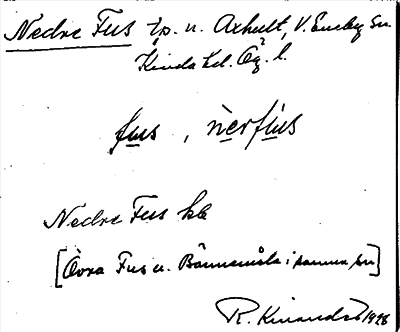 Nedre Fus tp. u. Axhult, V. Eneby sn.
Kinda hd. Ög. l.
fus, nerfus
Nedre Fus kb
[Övra Fus u. Bännemåla i samma sn]
R. Kinander 1928